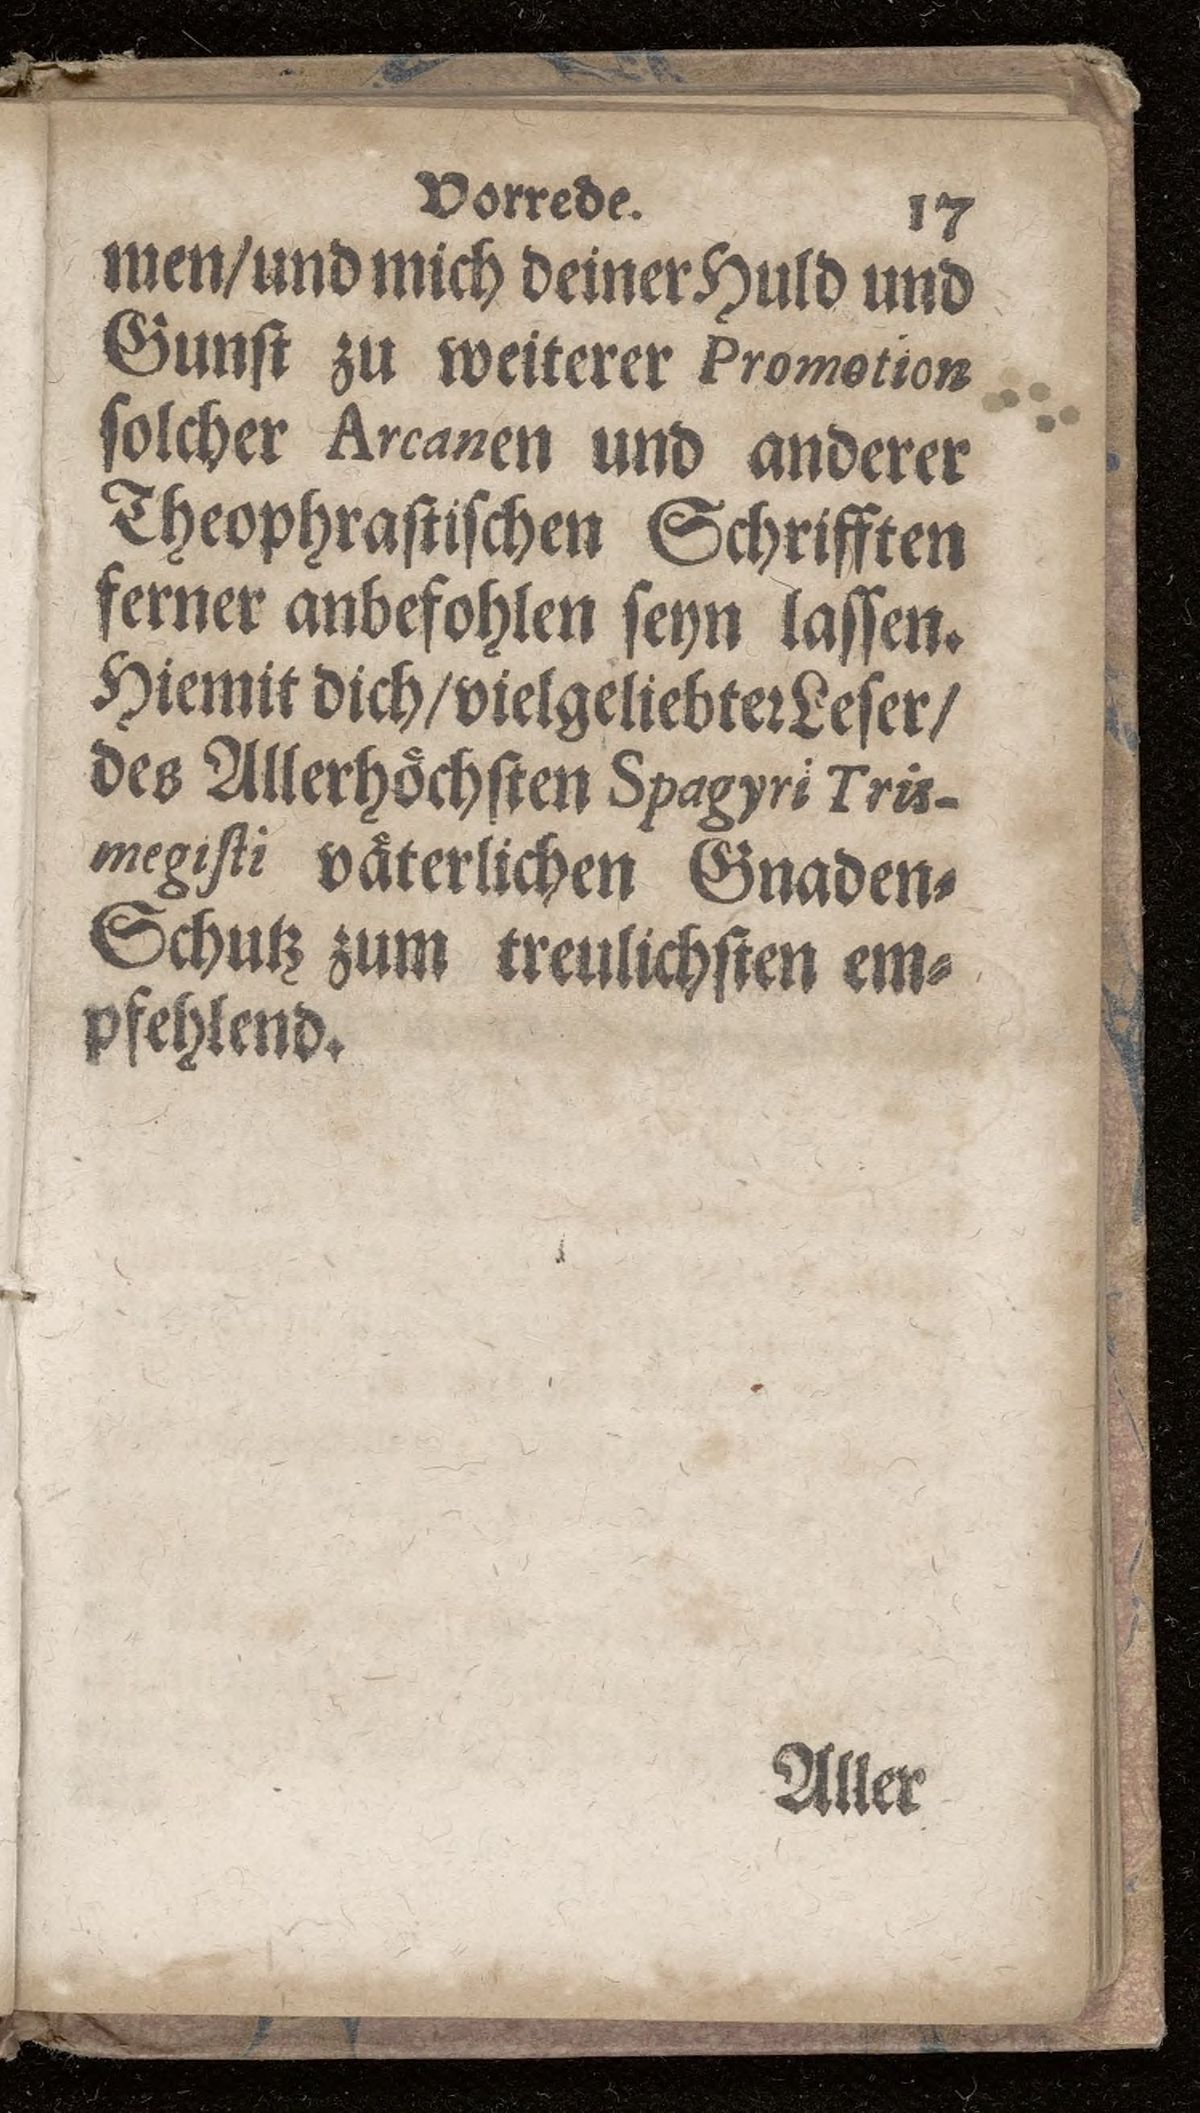 Vorrede. 17
men/und mich deiner Huld und
Gunſt zu weiterer Promotion
ſolcher Arcanen und anderer
Theophraſtiſchen Schrifften
ferner anbefohlen ſeyn laſſen.
Hiemit dich/vielgeliebter Leſer/
des Allerhoͤchſten Spagyri Tris-
megiſti vaͤterlichen Gnaden⸗
Schutz zum treulichſten em⸗
pfehlend.
Aller